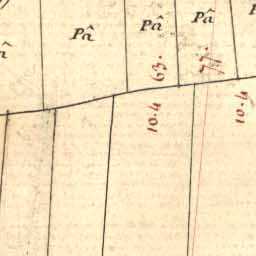 Pâ
Pâ
Pâ
Pâ
63.
77.
10.4
10.4